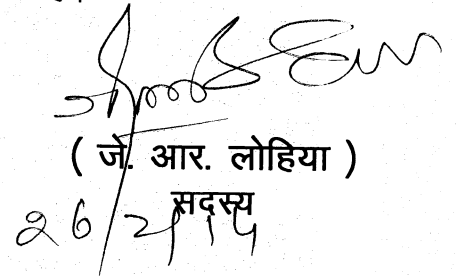 ( जे. आर. लोहिया )
सदस्य
26/2/14